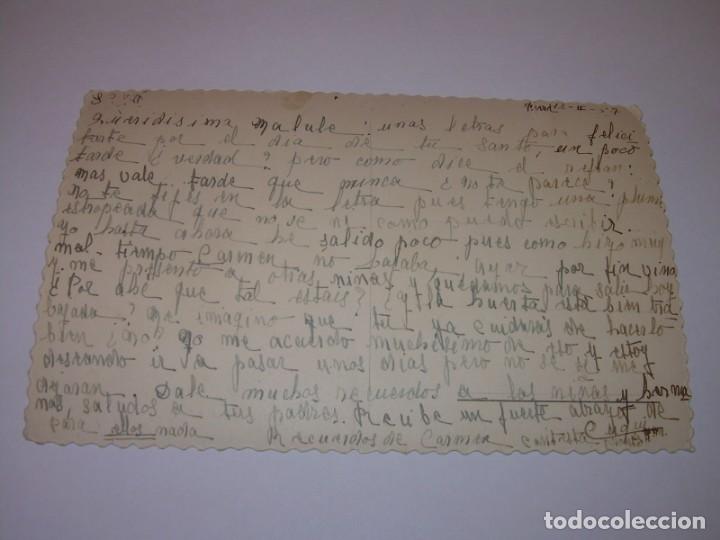 Queridisima Malule: unas letras para felici
tarte por el dia de tu santo, un poco
tarde ¿verdad? pero como dice el refran:
mas vale tarde que nunca ¿no te parece?
no te fijes en la letra pues tengo una pluma
estropeada que no se ni como puedo escribir.
yo hasta ahora he salido poco pues como hizo muy
mal tiempo Carmen no bajaba, ayer por fin vino
y me presento a otras niñas y quedamos para salir hoy
¿Por ahi que tal estais? ¿y la huerta esta bien tra
bajada? me imagino que tu ya cuidaras de hacerlo
bien ¿no? yo me acuerdo muchisimo de eso y estoy
deseando ir a pasar unos dias pero no se si me
dejaran. Dale muchos recuerdos a las niñas y herma
nas, saludos a tus padres. Recibe un fuerte abrazo de
para ellos nada Recuerdos de Carmen
todocoleccion
todocoleccion.net